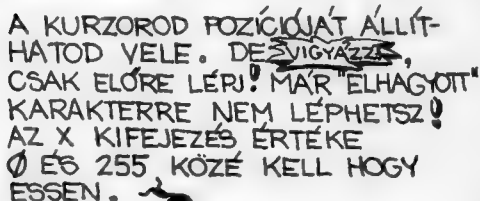 A KURZOROD POZÍCIÓJÁT ÁLLÍT-
HATOD VELE. DE VIGYÁZZ!,
CSAK ELŐRE LÉPJ! MÁR "ELHAGYOTT"
KARAKTERRE NEM LÉPHETSZ!
AZ X KIFEJEZÉS ÉRTÉKE
Ø ÉS 255 KÖZÉ KELL HOGY
ESSEN.